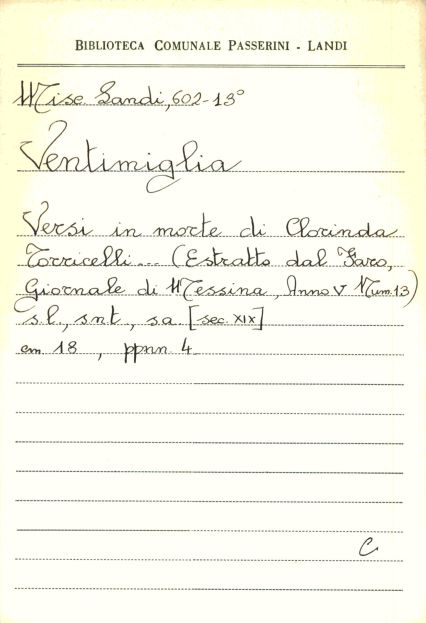 BIBLIOTECA COMUNALE PASSERINI - LANDI
Misc. Landi, 602-13°
Ventimiglia
Versi in morte di Clorinda
Torricelli... (Estratto dal Faro,
Giornale di Messina, Anno V Num. 13)
s.l., snt, sa. [sec. XIX]
cm 18, ppnn. 4
C